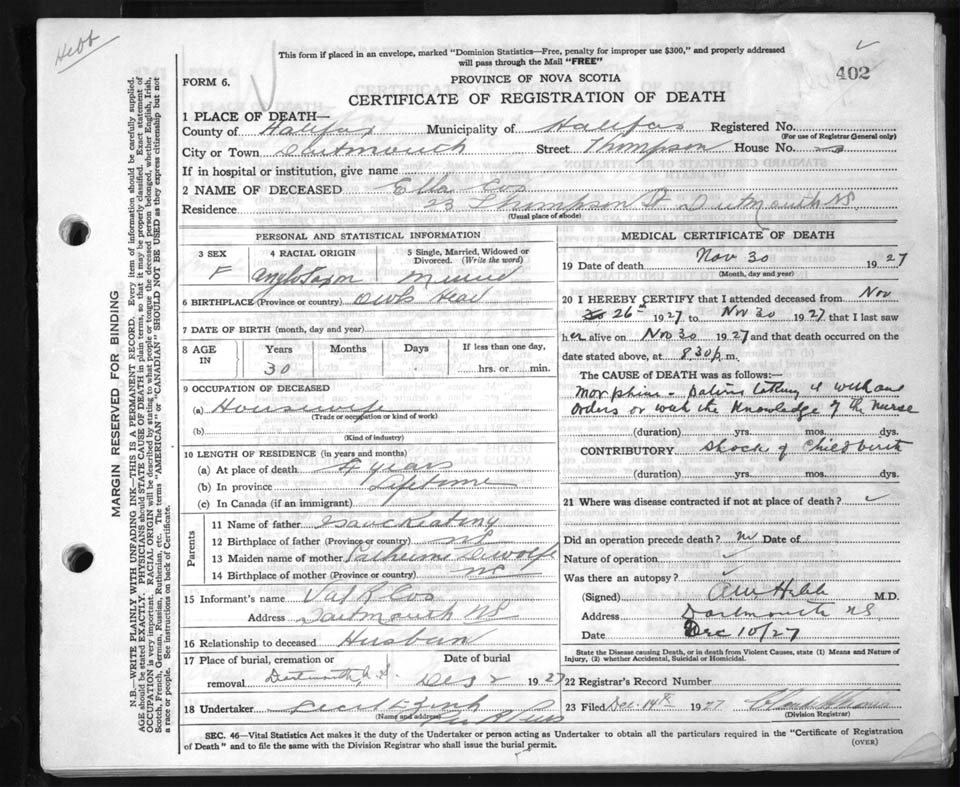 Hebb
This form if placed in an envelope, marked "Dominion Statistics—Free, penalty for improper use $300," and properly addressed
will pass through the Mail "FREE"
402
FORM 6.
PROVINCE OF NOVA SCOTIA
CERTIFICATE OF REGISTRATION OF DEATH
MARGIN RESERVED FOR BINDING
N.B.—WRITE PLAINLY WITH UNFADING INK—THIS IS A PERMANENT RECORD. Every item of information should be carefully supplied.
AGE should be stated EXACTLY. PHYSICIANS should STATE CAUSE OF DEATH in plain terms, so that it may be properly classified. Exact statement of
OCCUPATION is very important. RACIAL ORIGIN will be described by stating to what people or tongue the deceased person belonged, whether English, Irish,
Scotch, French, German, Russian, Ruthenian, etc. The terms "AMERICAN" or "CANADIAN" SHOULD NOT BE USED as they express citizenship but not
a race or people. See instructions on back of Certificate.
1 PLACE OF DEATH—
County of Halifax Municipality of Halifax Registered No.
(For use of Registrar General only)
City or Town Dartmouth Street Thompson House No.
If in hospital or institution, give name
2 NAME OF DECEASED Ella
Residence 23 Thompson St Dartmouth NS
(Usual place of abode)
PERSONAL AND STATISTICAL INFORMATION
3 SEX 4 RACIAL ORIGIN 5 Single, Married, Widowed or
Divorced. (Write the word)
F Anglo Saxon
6 BIRTHPLACE (Province or country) Owls Head
7 DATE OF BIRTH (month, day and year)
8 AGE IN Years Months Days If less than one day,
30 hrs. or min.
9 OCCUPATION OF DECEASED
(a) Housewife
(Trade or occupation or kind of work)
(b)
(Kind of industry)
10 LENGTH OF RESIDENCE (in years and months)
(a) At place of death 4 years
(b) In province Lifetime
(c) In Canada (if an immigrant)
Parents
11 Name of father Isaac Keating
12 Birthplace of father (Province or country) NS
13 Maiden name of mother Catherine Dewolfe
14 Birthplace of mother (Province or country) NS
15 Informant's name
Address Dartmouth NS
16 Relationship to deceased Husban
17 Place of burial, cremation or Date of burial
removal Dartmouth, N.S. Dec 2 1927
18 Undertaker
(Name and address)
MEDICAL CERTIFICATE OF DEATH
19 Date of death Nov 30 1927
(Month, day and year)
20 I HEREBY CERTIFY that I attended deceased from Nov
26th 1927 to Nov 30 1927 that I last saw
her alive on Nov 30 1927 and that death occurred on the
date stated above, at 8.30 p.m.
The CAUSE of DEATH was as follows:—
Morphine - Patient taking it without
orders or with the knowledge of the nurse
(duration) yrs. mos. dys.
CONTRIBUTORY Shock of Childbirth
(duration) yrs. mos. dys.
21 Where was disease contracted if not at place of death?
Did an operation precede death? no Date of
Nature of operation
Was there an autopsy?
(Signed) Hebb M.D.
Address Dartmouth NS
Date Dec 10/27
State the Disease causing Death, or in death from Violent Causes, state (1) Means and Nature of
Injury, (2) whether Accidental, Suicidal or Homicidal.
22 Registrar's Record Number
23 Filed Dec. 14th 1927
(Division Registrar)
SEC. 46—Vital Statistics Act makes it the duty of the Undertaker or person acting as Undertaker to obtain all the particulars required in the "Certificate of Registration
of Death" and to file the same with the Division Registrar who shall issue the burial permit.
(OVER)